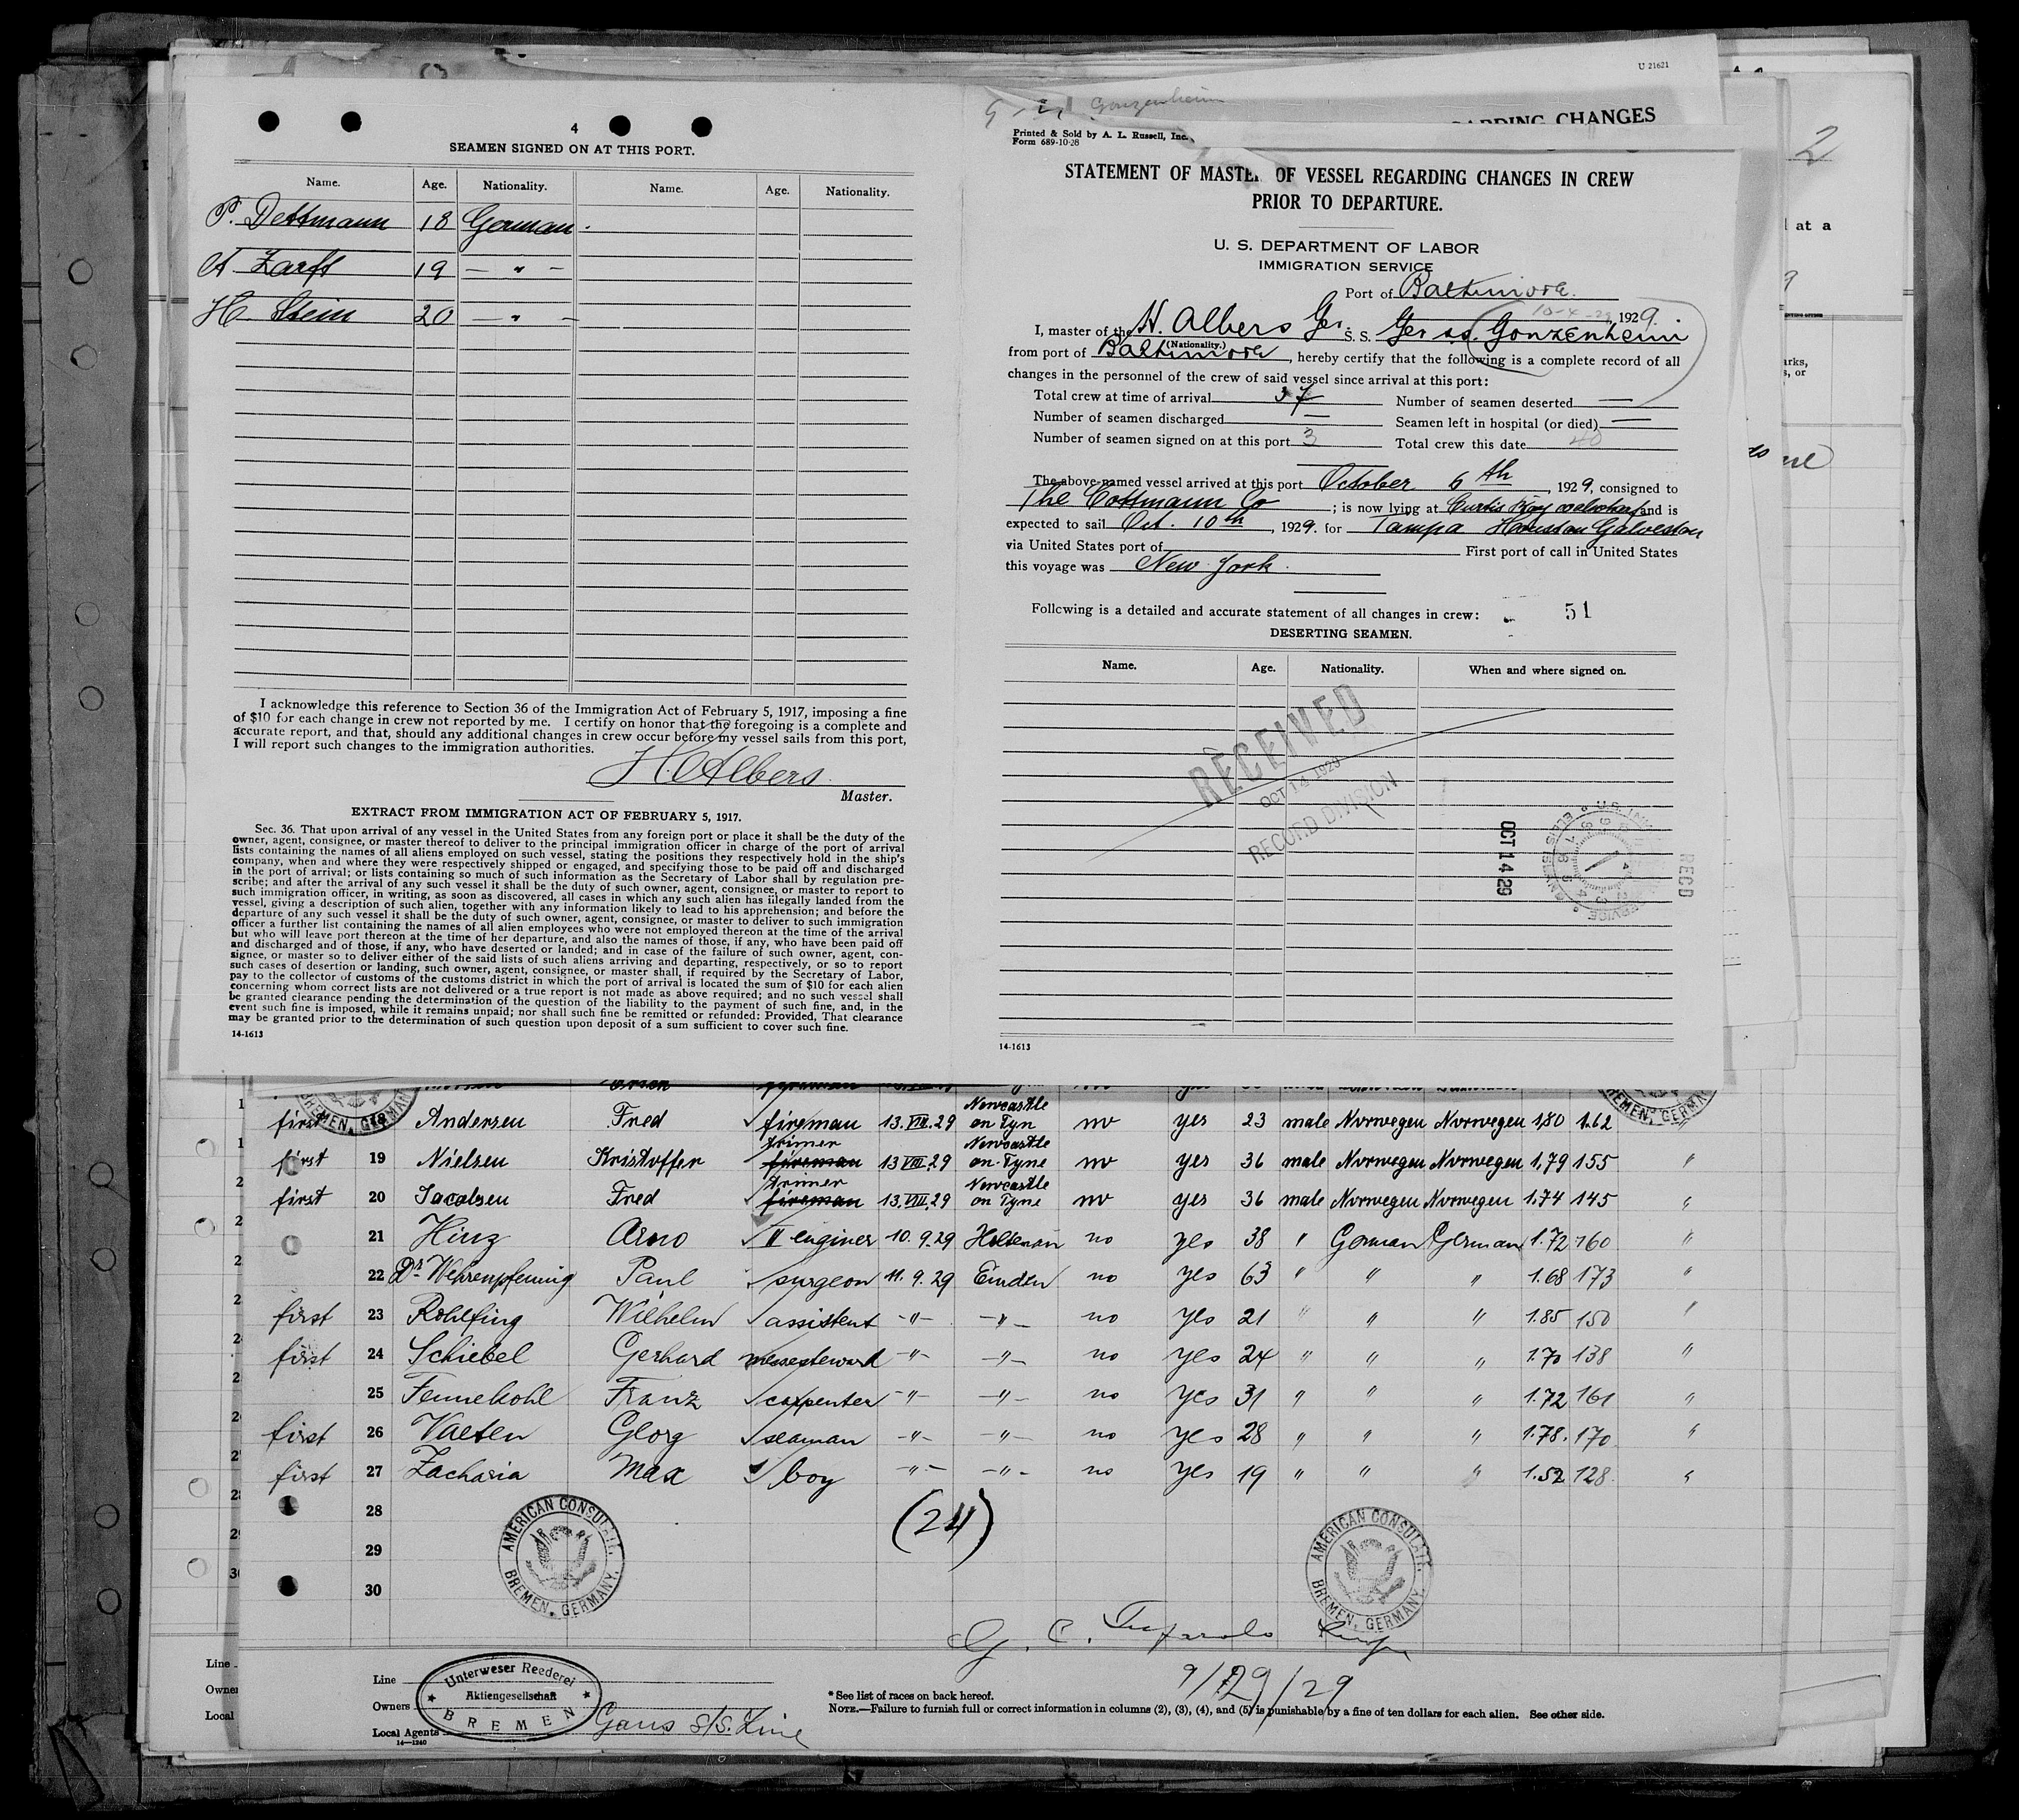 U 21621
4
SEAMEN SIGNED ON AT THIS PORT.
Name. Age. Nationality. Name. Age. Nationality.
P. Dettmann 18 German.
A Zarft 19 — " —
H. Stein 20 — " —
I acknowledge this reference to Section 36 of the Immigration Act of February 5, 1917, imposing a fine
of $10 for each change in crew not reported by me. I certify on honor that the foregoing is a complete and
accurate report, and that, should any additional changes in crew occur before my vessel sails from this port,
I will report such changes to the immigration authorities.
H. Albers
Master.
EXTRACT FROM IMMIGRATION ACT OF FEBRUARY 5, 1917.
Sec. 36. That upon arrival of any vessel in the United States from any foreign port or place it shall be the duty of the
owner, agent, consignee, or master thereof to deliver to the principal immigration officer in charge of the port of arrival
lists containing the names of all aliens employed on such vessel, stating the positions they respectively hold in the ship's
company, when and where they were respectively shipped or engaged, and specifying those to be paid off and discharged
in the port of arrival; or lists containing so much of such information as the Secretary of Labor shall by regulation pre-
scribe; and after the arrival of any such vessel it shall be the duty of such owner, agent, consignee, or master to report to
such immigration officer, in writing, as soon as discovered, all cases in which any such alien has illegally landed from the
vessel, giving a description of such alien, together with any information likely to lead to his apprehension; and before the
departure of any such vessel it shall be the duty of such owner, agent, consignee, or master to deliver to such immigration
officer a further list containing the names of all alien employees who were not employed thereon at the time of the arrival
but who will leave port thereon at the time of her departure, and also the names of those, if any, who have been paid off
and discharged and of those, if any, who have deserted or landed; and in case of the failure of such owner, agent, con-
signee, or master so to deliver either of the said lists of such aliens arriving and departing, respectively, or so to report
such cases of desertion or landing, such owner, agent, consignee, or master shall, if required by the Secretary of Labor,
pay to the collector of customs of the customs district in which the port of arrival is located the sum of $10 for each alien
concerning whom correct lists are not delivered or a true report is not made as above required; and no such vessel shall
be granted clearance pending the determination of the question of the liability to the payment of such fine, and, in the
event such fine is imposed, while it remains unpaid; nor shall such fine be remitted or refunded: Provided, That clearance
may be granted prior to the determination of such question upon deposit of a sum sufficient to cover such fine.
14-1613
Gonzenheim
CHANGES
Printed & Sold by A. L. Russell, Inc.
Form 689-10-28
STATEMENT OF MASTER OF VESSEL REGARDING CHANGES IN CREW
PRIOR TO DEPARTURE.
U. S. DEPARTMENT OF LABOR
IMMIGRATION SERVICE
Port of Baltimore.
10-4-29, 1929.
I, master of the H. Albers Ger. S. S. Ger ss. Gonzenheim
(Nationality.)
from port of Baltimore, hereby certify that the following is a complete record of all
changes in the personnel of the crew of said vessel since arrival at this port:
Total crew at time of arrival 37 Number of seamen deserted —
Number of seamen discharged — Seamen left in hospital (or died) —
Number of seamen signed on at this port 3 Total crew this date 40
The above-named vessel arrived at this port October 6th, 1929, consigned to
The Cottmann Co; is now lying at Curtis Bay and is
expected to sail Oct. 10th, 1929. for Tampa Houston Galveston
via United States port of First port of call in United States
this voyage was New York.
Following is a detailed and accurate statement of all changes in crew: 51
DESERTING SEAMEN.
Name. Age. Nationality. When and where signed on.
RECEIVED
OCT 14 1929
RECORD DIVISION
OCT 14 29
RECD
14-1613
2
at a
arks,
s, or
Newcastle
first 18 Andersen Fred ✓ fireman 13.VIII.29 on Tyn no yes 23 male Norwegen Norwegen 1,80 1.62 "
trimer Newcastle
first 19 Nielsen Kristoffer fireman 13 VIII.29 on Tyne no yes 36 male Norwegen Norwegen 1,79 155 "
trimer Newcastle
first 20 Jacobsen Fred ✓ fireman 13.VIII.29 on Tyne no yes 36 male Norwegen Norwegen 1.74 145 "
21 Hinz Arno ✓ II enginer 10.9.29 Holtenau no yes 38 " German German 1.72 160 "
22 Dr. Wehrenpfennig Paul ✓ surgeon 11.9.29 Emden no yes 63 " " " 1.68 173 "
first 23 Rohlfing Wilhelm ✓ assistent -"- -"- no yes 21 " " " 1.85 150 "
first 24 Schiebel Gerhard messesteward -"- -"- no yes 24 " " " 1.70 138 "
25 Fennekohl Franz ✓ carpenter -"- -"- no yes 31 " " " 1.72 161 "
first 26 Vaeten Georg ✓ seaman -"- -"- no yes 28 " " " 1.78. 170 "
first 27 Zacharia Max ✓ boy -"- -"- no yes 19 " " " 1.52 128. "
28
29
30
(24)
AMERICAN CONSULATE, BREMEN, GERMANY.
AMERICAN CONSULATE, BREMEN, GERMANY.
9/29/29
Line
Owners
Local Agents
Unterweser Reederei
Aktiengesellschaft
BREMEN
Gans S/S. Line
14—1240
* See list of races on back hereof.
NOTE.—Failure to furnish full or correct information in columns (2), (3), (4), and (5) is punishable by a fine of ten dollars for each alien. See other side.